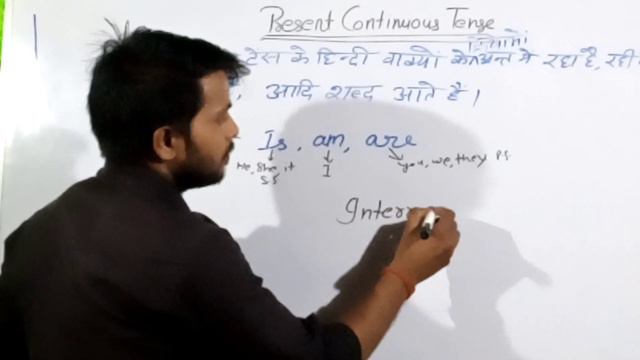 Present Continuous Tense
क्रियाओं
टेंस के हिन्दी वाक्यों के अन्त मे रहा है, रही
, आदि शब्द आते है।
Is, am, are
He, She, it I you, we, they PS.
SS
Inter